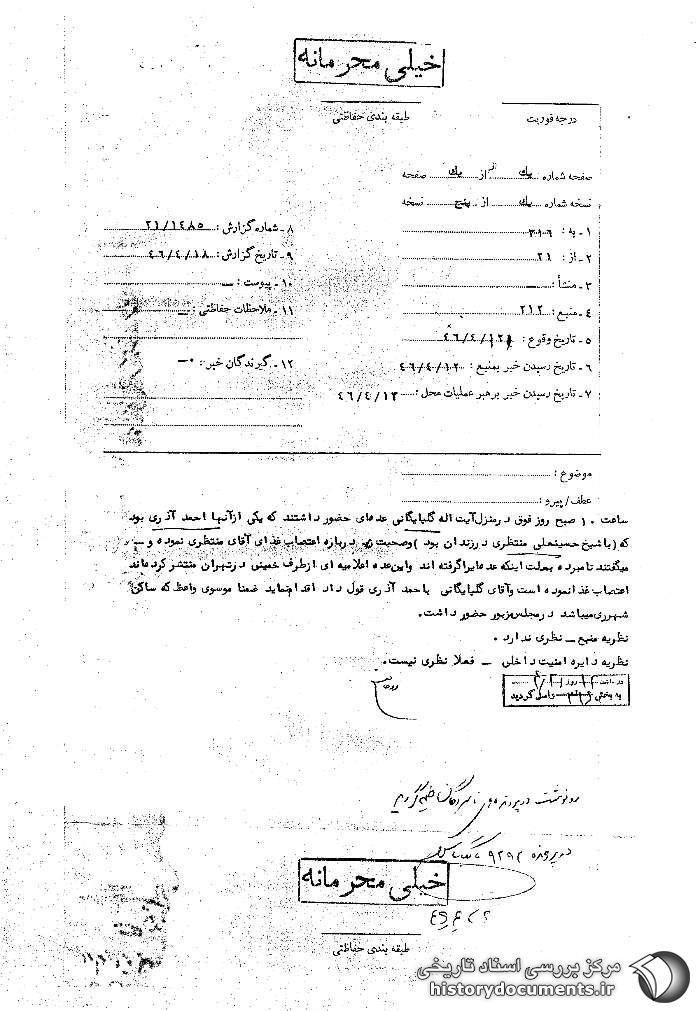 خیلی محرمانه
طبقه بندی حفاظتی
درجه فوریت
صفحه شماره یک از یک صفحه
نسخه شماره یک از پنج نسخه
۱ـ به : ۳۱۶
۲ـ از : ۲۱
۳ـ منشأ : ـ
۴ـ منبع : ۲۱۲
۵ـ تاریخ وقوع : ۴۶/۴/۱۲
۶ـ تاریخ رسیدن خبر بمنبع : ۴۶/۴/۱۲
۷ـ تاریخ رسیدن خبر برهبر عملیات محل : ۴۶/۴/۱۳
۸ـ شماره گزارش : ۲۱/۱۴۸۵
۹ـ تاریخ گزارش : ۴۶/۴/۱۸
۱۰ـ پیوست : ـ
۱۱ـ ملاحظات حفاظتی : ـ
۱۲ـ گیرندگان خبر : ـ
موضوع :
عطف/پیرو :
ساعت ۱۰ صبح روز فوق درمنزل آیت اله گلپایگانی عده‌ای حضور داشتند که یکی ازآنها احمد آذری بود
که (با شیخ حسینعلی منتظری درزندان بود) وصحبت درباره اعتصاب غذای آقای منتظری نموده و ـ
میگفتند نامبرده بعلت اینکه عده‌ایراگرفته اند واین‌عده اعلامیه ای ازطرف خمینی درتهران منتشر کرده‌اند
اعتصاب غذانموده است وآقای گلپایگانی باحمد آذری قول داد اقدام‌نماید ضمنا موسوی واعظ که ساکن
شهرری میباشد درمجلس‌مزبور حضور داشت.
نظریه منبع ـ نظری ندارد .
نظریه دایره امنیت داخلی ـ فعلا نظری نیست .
به بخش ۳۱۶ واصل گردید
رونوشت در پرونده‌های نامبردگان ضمیمه گردید
در پرونده
خیلی محرمانه
طبقه بندی حفاظتی
مرکز بررسی اسناد تاریخی
historydocuments.ir